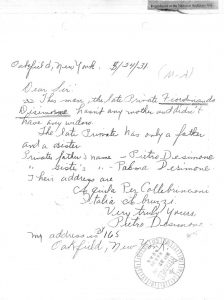 Oakfield, New York. 8/24/31
Dear Sir:
This man, the late Private Ferdinando
Desimone hasn't any mother and didn't
have any widow.
The late Private has only a father
and a sister
Private father's name - Pietro Desimone
" Siste's " - Palma Desimone
Their address are
Aquila Per Collebrincioni
Italia Abruzzi.
Very truly yours
Pietro Desimone
my address is 165
Oakfield, New York